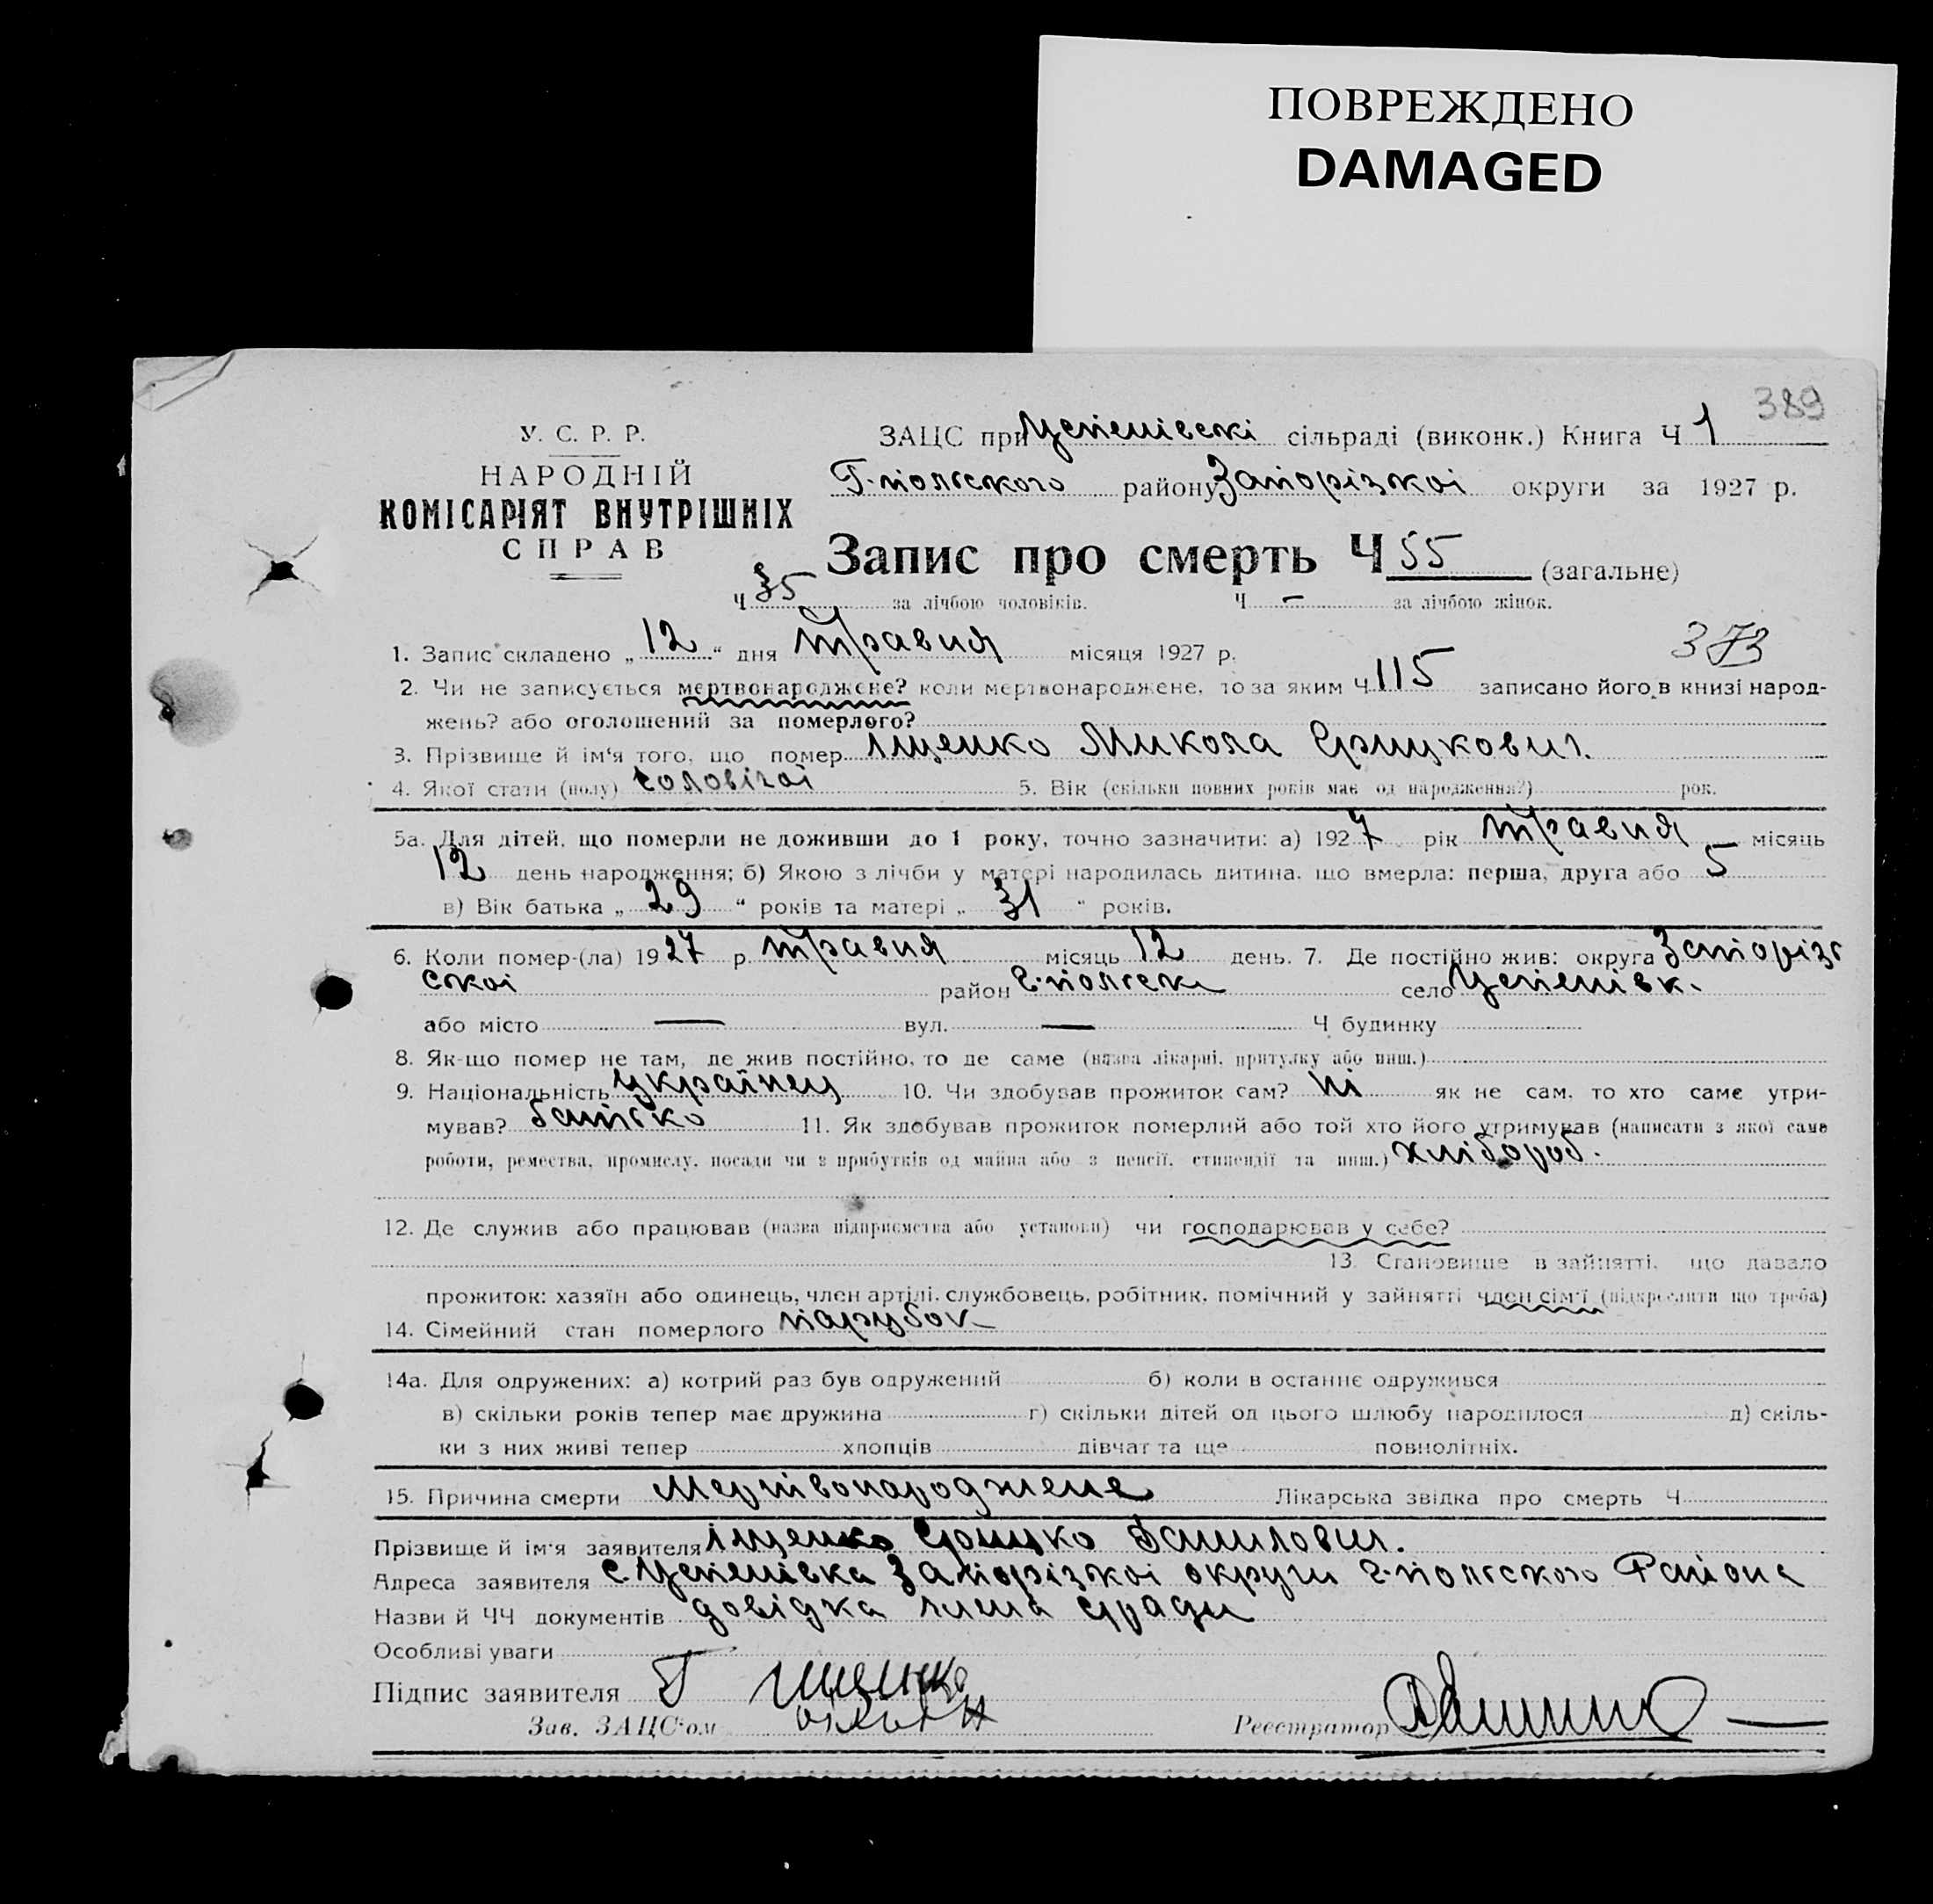 ПОВРЕЖДЕНО
DAMAGED
389
У. С. Р. Р.
НАРОДНІЙ
КОМІСАРІЯТ ВНУТРІШНІХ
СПРАВ
ЗАЦС при Успенівскі сільраді (виконк.) Книга Ч 1
Г-польского району Запорізкої округи за 1927 р.
Запис про смерть Ч 55 (загальне)
Ч 35 за лічбою чоловіків. Ч — за лічбою жінок.
373
1. Запис складено „ 12 “ дня травня місяця 1927 р.
2. Чи не записується мертвонароджене? коли мертвонароджене, то за яким Ч 115 записано його в книзі народ-
жень? або оголошений за померлого?
3. Прізвище й ім‘я того, що помер Іщенко Микола
4. Якої стати (полу) чоловічої 5. Вік (скільки повних років має од народження?) рок.
5а. Для дітей, що померли не доживши до 1 року, точно зазначити: а) 1927 рік травня місяць
12 день народження; б) Якою з лічби у матері народилась дитина, що вмерла: перша, друга або 5
в) Вік батька „ 29 “ років та матері „ 31 “ років.
6. Коли помер-(ла) 1927 р. травня місяць 12 день. 7. Де постійно жив: округа Запорізь
скої район Г-польск село Успенівк.
або місто — вул. — Ч будинку
8. Як-що помер не там, де жив постійно, то де саме (назва лікарні, притулку або инш.)
9. Національність українец 10. Чи здобував прожиток сам? ні як не сам, то хто саме утри-
мував? батько 11. Як здобував прожиток померлий або той хто його утримував (написати з якої саме
роботи, ремества, промислу, посади чи з прибутків од майна або з пенсії, стипендії та инш.) хлібороб.
12. Де служив або працював (назва підприємства або установи) чи господарював у себе?
13. Становище в зайнятті, що давало
прожиток: хазяїн або одинець, член артілі, службовець, робітник, помічний у зайнятті член сім‘ї (підкреслити що треба)
14. Сімейний стан померлого парубок
14а. Для одружених: а) котрий раз був одружений б) коли в останнє одружився
в) скільки років тепер має дружина г) скільки дітей од цього шлюбу народилося д) скіль-
ки з них живі тепер хлопців дівчат та ще повнолітніх.
15. Причина смерти Мертвонароджене Лікарська звідка про смерть Ч
Прізвище й ім‘я заявителя Іщенко Данилович.
Адреса заявителя с Успенівка Запорізкої округи Г-польского Района
Назви й ЧЧ документів довідка
Особливі уваги
Підпис заявителя Г Ищенко
Зав. ЗАЦС‘ом
Реєстратор